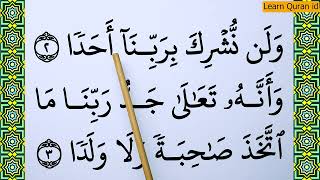 Learn Quran id
وَلَن نُّشْرِكَ بِرَبِّنَآ أَحَدًا ٢
وَأَنَّهُۥ تَعَالَىٰ جَدُّ رَبِّنَا مَا
ٱتَّخَذَ صَاحِبَةً وَلَا وَلَدًا ٣